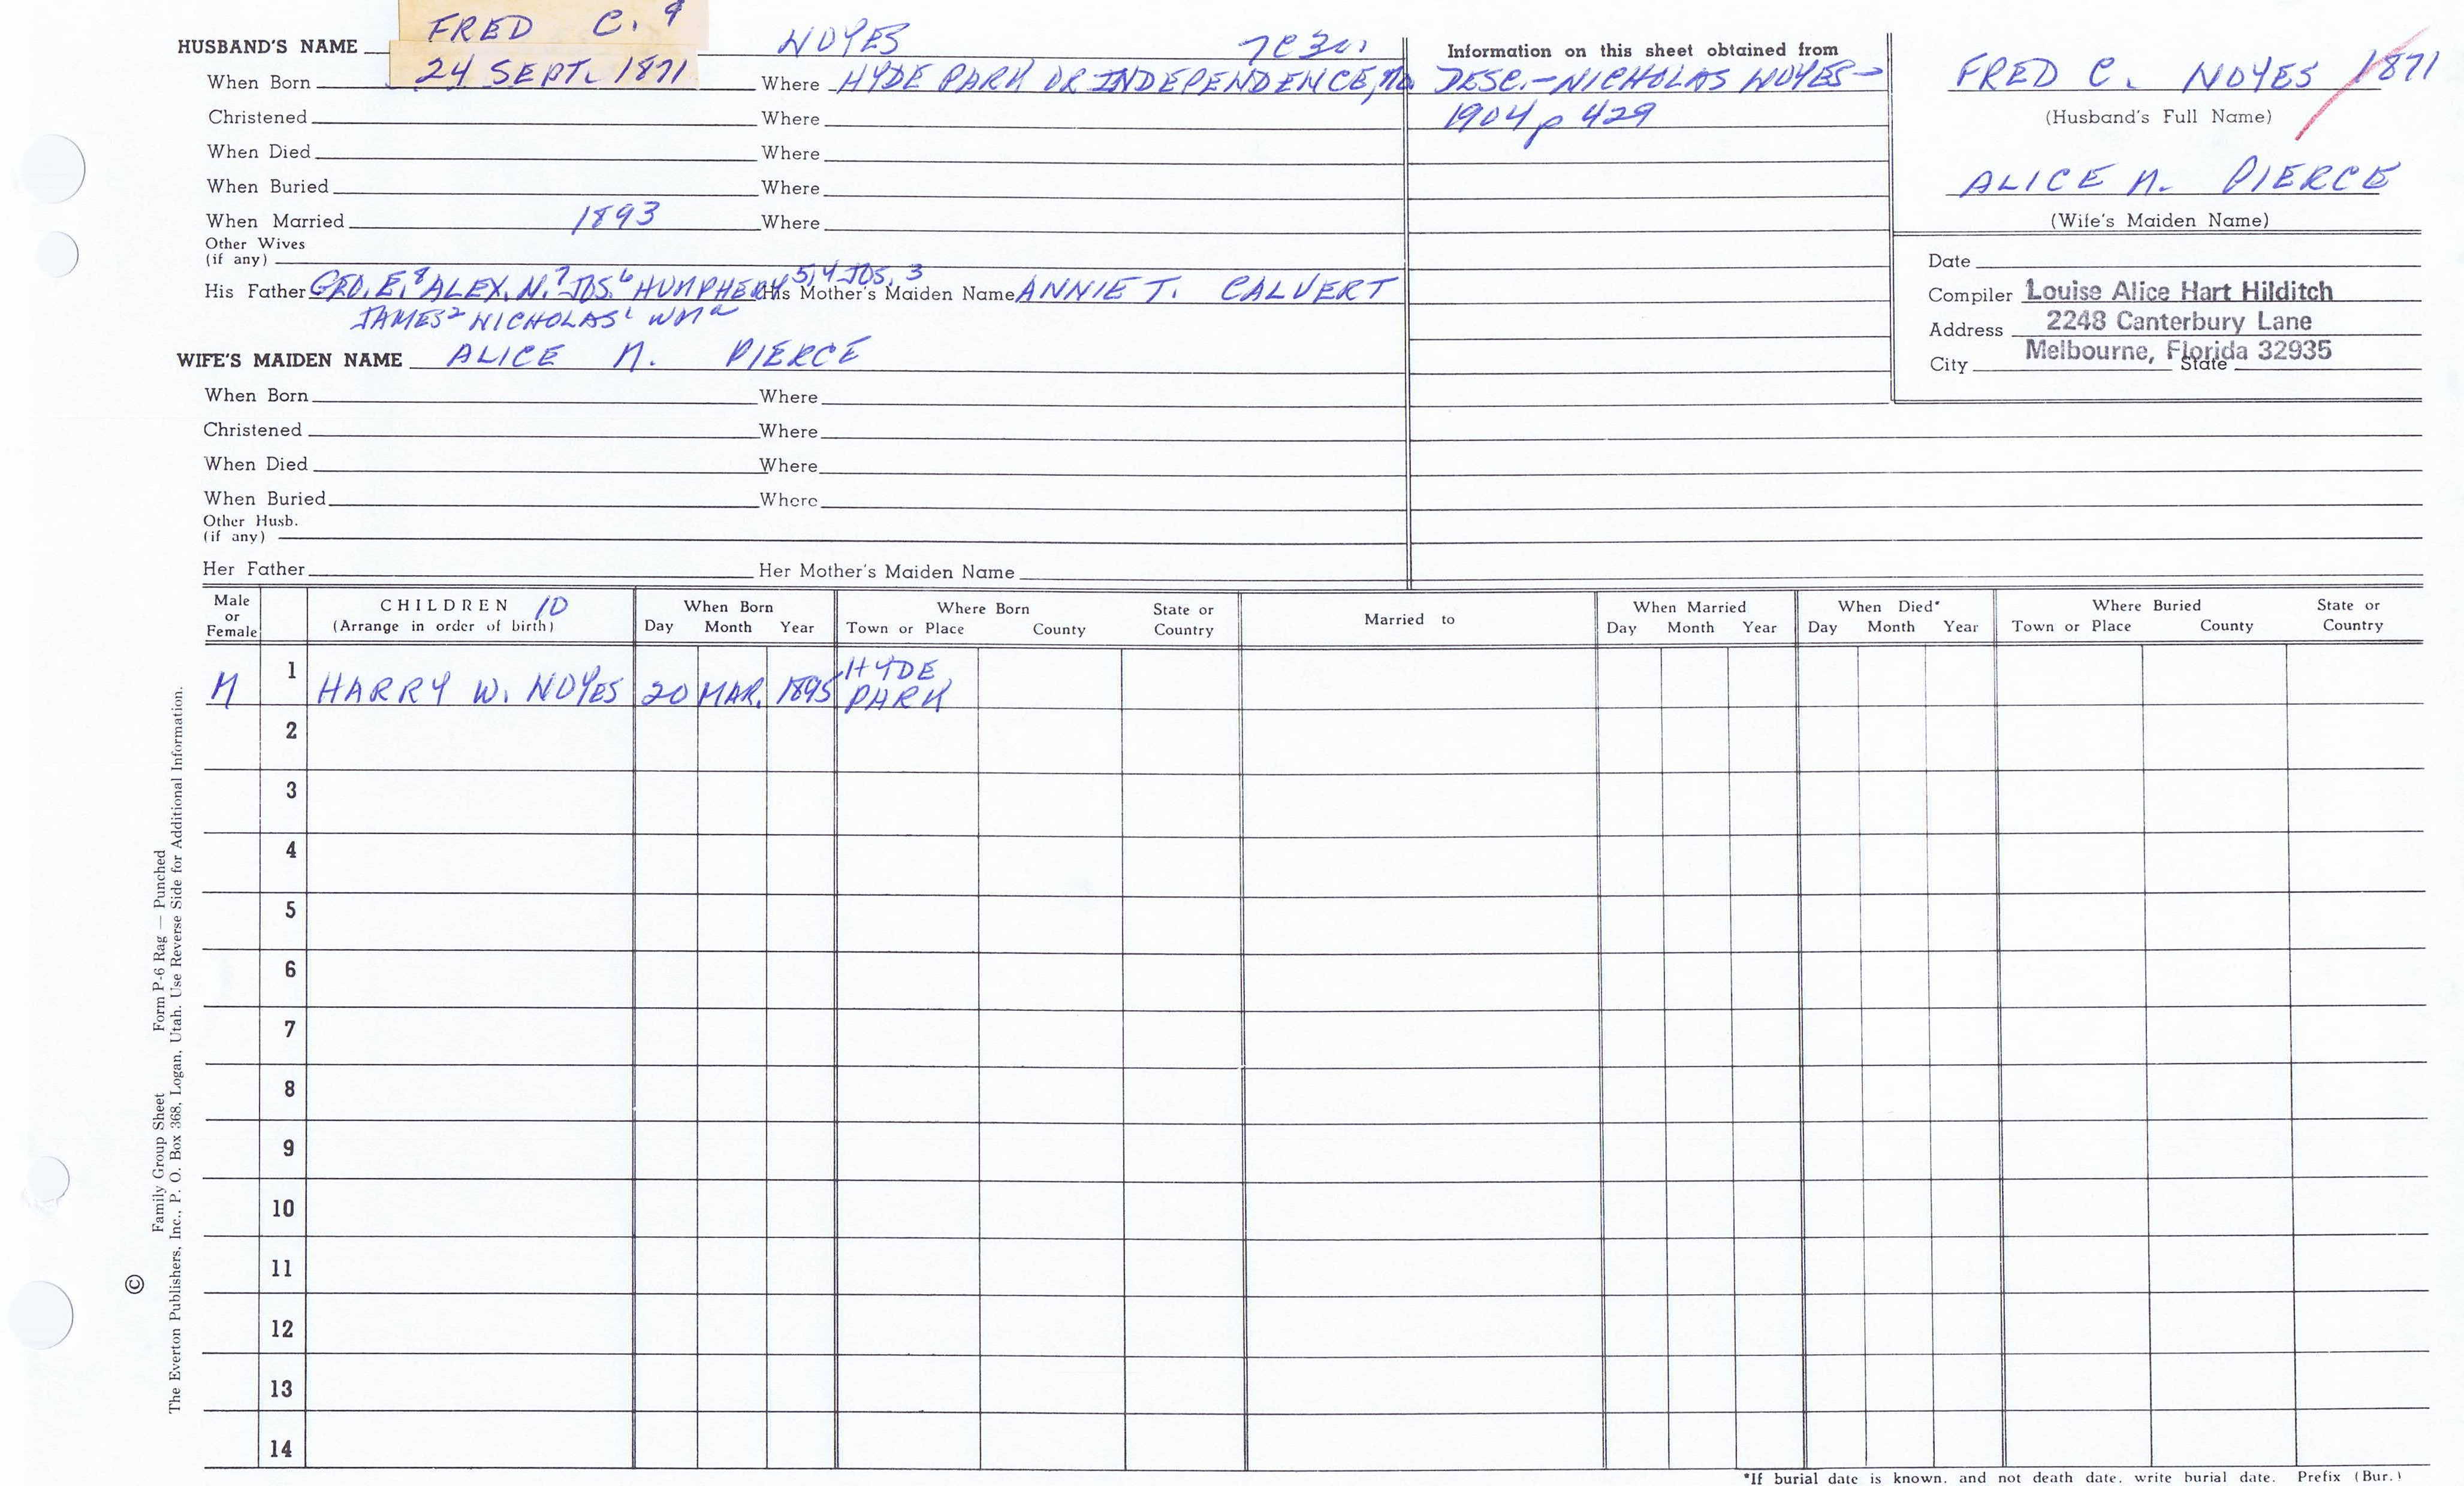 FRED C. 9
HUSBAND'S NAME NOYES
24 SEPT. 1871
When Born Where HYDE PARK OR INDEPENDENCE, Mo.
Christened Where
When Died Where
When Buried Where
When Married 1893 Where
Other Wives
(if any)
His Father GEO. E.8 ALEX. N.7 JOS.6 HUMPHERY 5,4 JOS. 3 His Mother's Maiden Name ANNIE T. CALVERT
JAMES2 NICHOLAS1 WMa
WIFE'S MAIDEN NAME ALICE M. PIERCE
When Born Where
Christened Where
When Died Where
When Buried Where
Other Husb.
(if any)
Her Father Her Mother's Maiden Name
Information on this sheet obtained from
DESC.-NICHOLAS NOYES-
1904 p 429
FRED C. NOYES 1871
(Husband's Full Name)
ALICE M. PIERCE
(Wife's Maiden Name)
Date
Compiler Louise Alice Hart Hilditch
Address 2248 Canterbury Lane
City Melbourne, Florida 32935 State
Male or Female CHILDREN 10 (Arrange in order of birth) When Born Day Month Year Where Born Town or Place County State or Country Married to When Married Day Month Year When Died* Day Month Year Where Buried Town or Place County State or Country
M 1 HARRY W. NOYES 20 MAR. 1895 HYDE PARK
2
3
4
5
6
7
8
9
10
11
12
13
14
*If burial date is known, and not death date, write burial date. Prefix (Bur.)
©
Family Group Sheet Form P-6 Rag — Punched
The Everton Publishers, Inc., P. O. Box 368, Logan, Utah. Use Reverse Side for Additional Information.